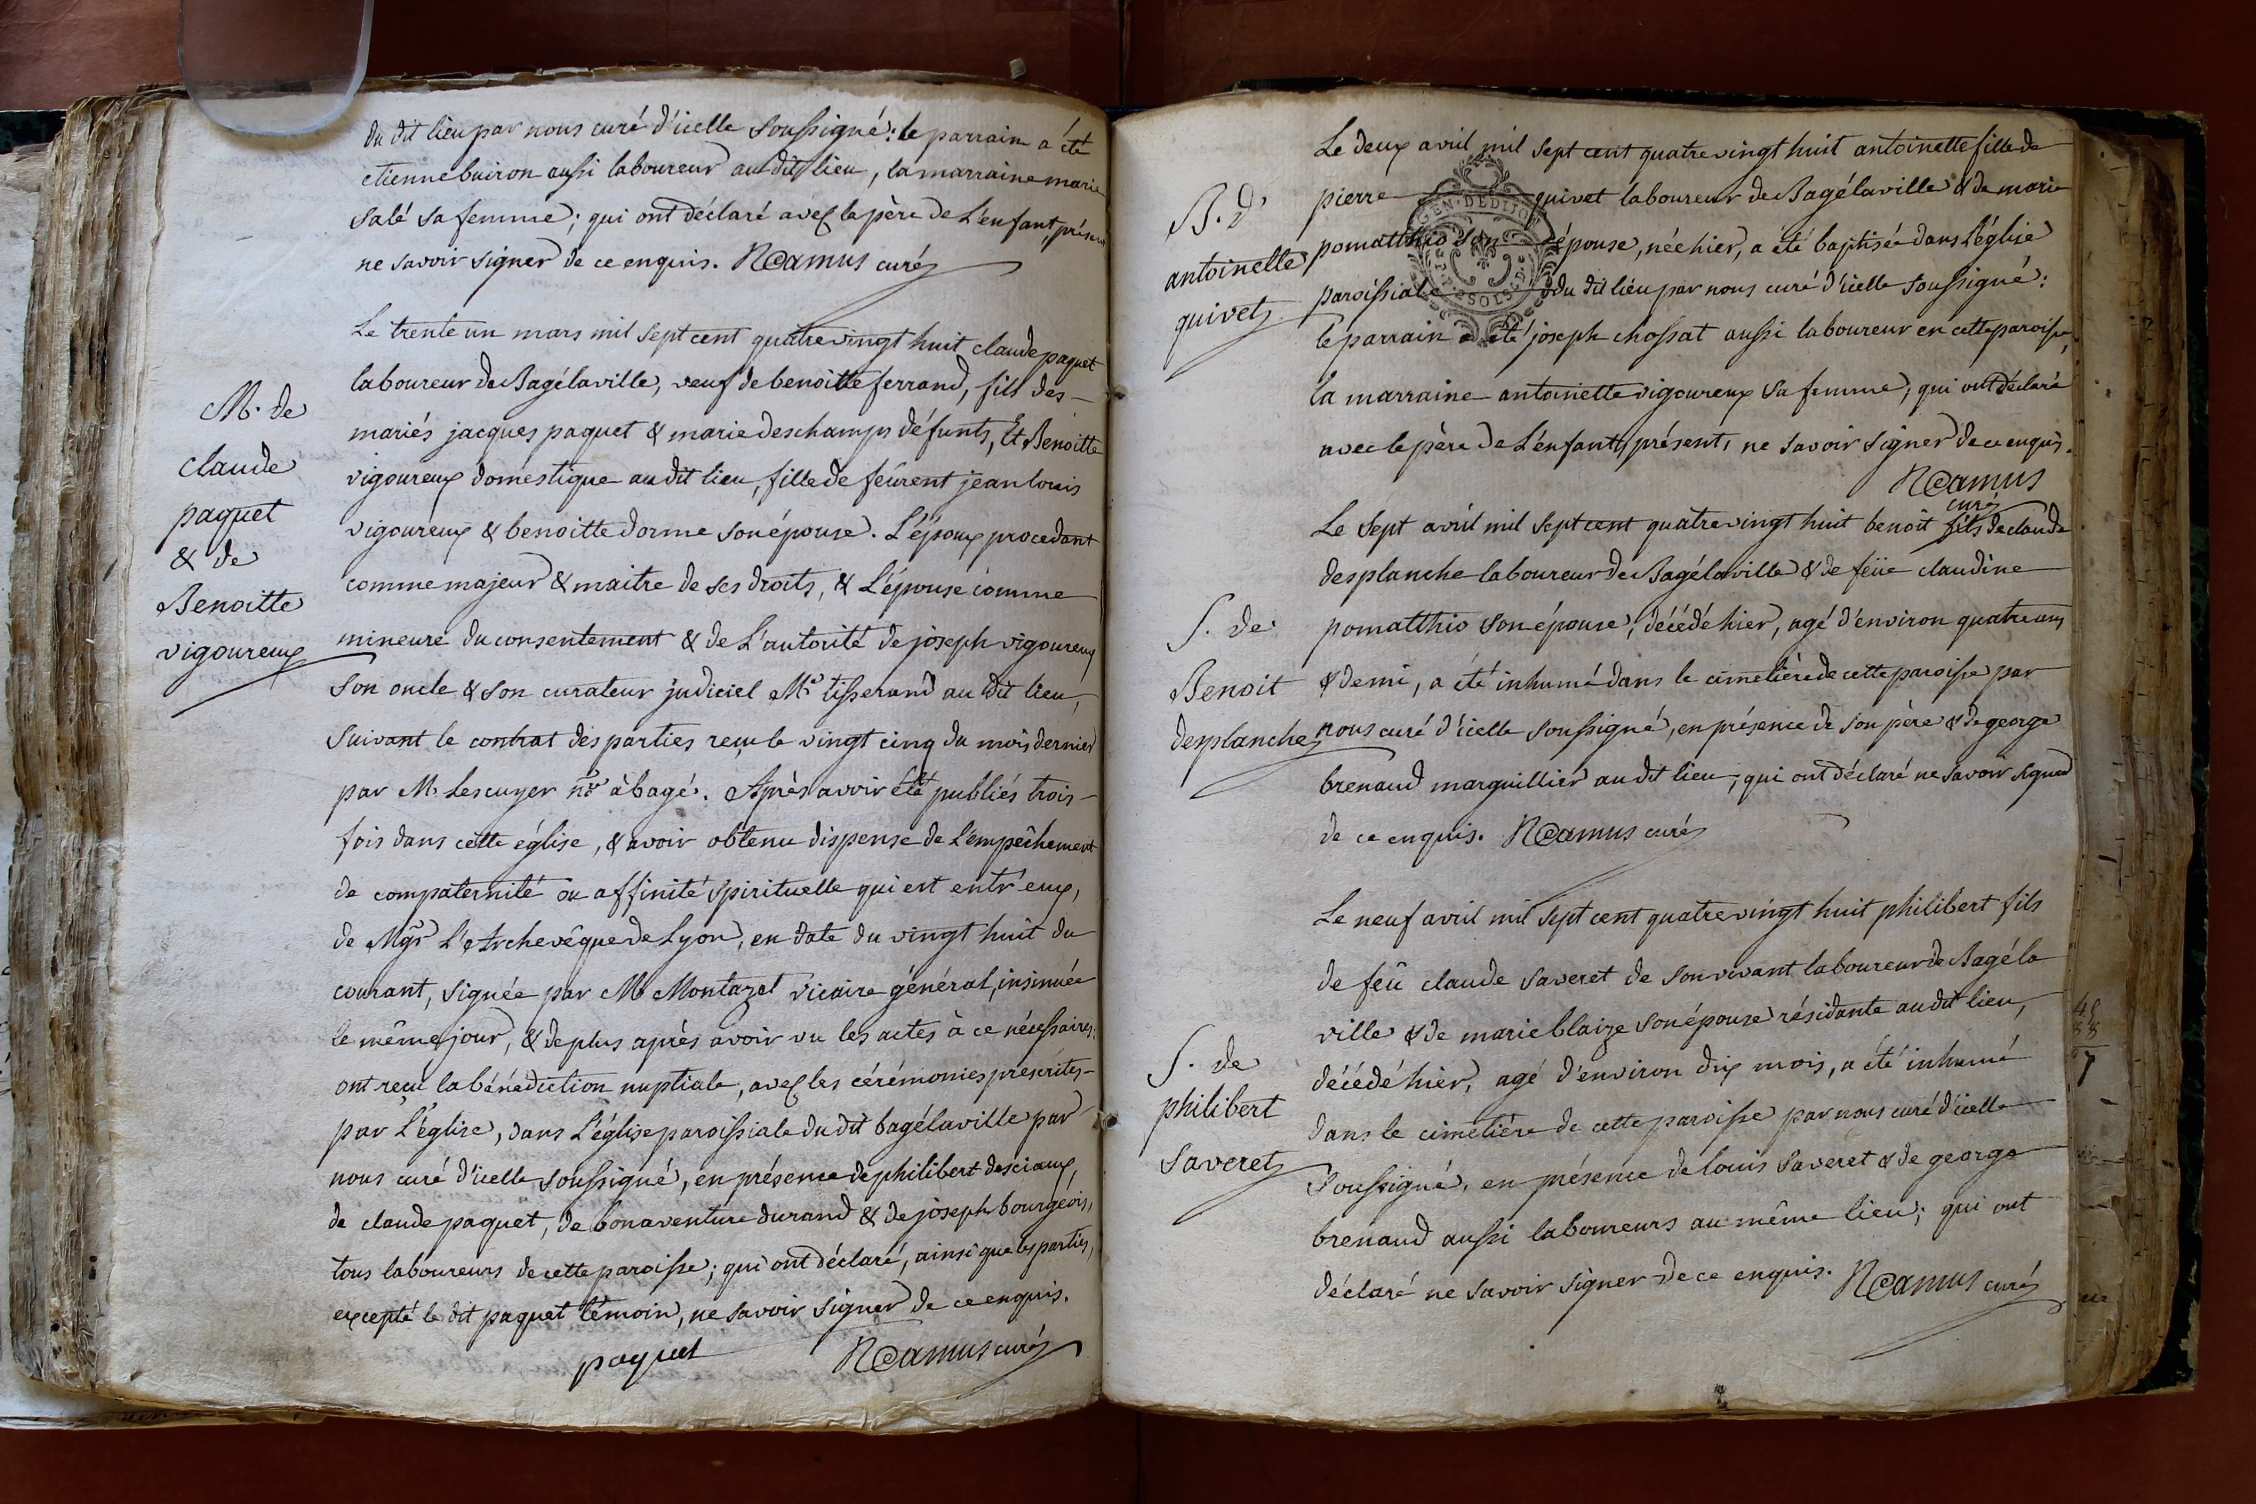 du dit lieu par nous curé d'icelle soussigné: le parrain a été
etienne buiron aussi laboureur au dit lieu, la marraine marie
salé sa femme; qui ont déclaré avec le père de L'enfant, présent
ne savoir signer de ce enquis. Camus curé
M. de
claude
paquet
& de
Benoitte
vigoureux
Le trente un mars mil sept cent quatre vingt huit claude paquet
laboureur de Bagélaville, veuf de benoitte ferrand, fils des
mariés jacques paquet & marie deschamps défunts, Et Benoitte
vigoureux domestique au dit lieu, fille de feûrent jean louis
vigoureux & benoitte dorme son épouse. L'époux procedant
comme majeur & maitre de ses droits, & L'épouse comme
mineure du consentement & de L'autorité de joseph vigoureux
son oncle & son curateur judiciel Me tisserand au dit lieu,
suivant le contrat des parties reçu le vingt cinq du mois dernier
par Me Lescuyer nre à bagé. Après avoir été publiés trois
fois dans cette église, & avoir obtenu dispense de L'empêchement
de compaternité ou affinité spirituelle qui est entr'eux,
de Mgr L'Archevêque de Lyon, en date du vingt huit du
courant, signée par Mr Montazet vicaire général, insinuée
le même jour, & de plus après avoir vu les actes à ce nécessaires:
ont reçu la bénédiction nuptiale, avec les cérémonies prescrites
par L'église, dans L'église paroissiale du dit bagélaville par
nous curé d'icelle soussigné, en présence de philibert desciaux,
de claude paquet, de bonaventure durand & de joseph bourgeois,
tous laboureurs de cette paroisse; qui ont déclaré, ainsi que les parties,
excepté le dit paquet témoin, ne savoir signer de ce enquis.
paquet Camus curé
B. d'
antoinette
quivet
Le deux avril mil sept cent quatre vingt huit antoinette fille de
pierre quivet laboureur de Bagélaville & de marie
pomatthio son épouse, née hier, a été baptisée dans L'église
paroissiale du dit lieu par nous curé d'icelle soussigné:
le parrain a été joseph chossat aussi laboureur en cette paroisse,
la marraine antoinette vigoureux sa femme; qui ont déclaré
avec le père de L'enfant, présent, ne savoir signer de ce enquis.
Camus
curé
GEN. DE DIJON
SOLS
S. de
Benoit
desplanche
Le sept avril mil sept cent quatre vingt huit benoit fils de claude
desplanche laboureur de Bagélaville & de feüe claudine
pomatthio son épouse, décédé hier, agé d'environ quatre ans
& demi, a été inhumé dans le cimetière de cette paroisse par
nous curé d'icelle soussigné, en présence de son père & de george
brenaud marguillier au dit lieu; qui ont déclaré ne savoir signer
de ce enquis. Camus curé
S. de
philibert
saveret
Le neuf avril mil sept cent quatre vingt huit philibert fils
de feü claude saveret de son vivant laboureur de Bagéla
ville & de marie blaize son épouse résidante au dit lieu,
décédé hier, agé d'environ dix mois, a été inhumé
dans le cimetière de cette paroisse par nous curé d'icelle
soussigné, en présence de louis saveret & de george
brenaud aussi laboureurs au même lieu; qui ont
déclaré ne savoir signer de ce enquis. Camus curé